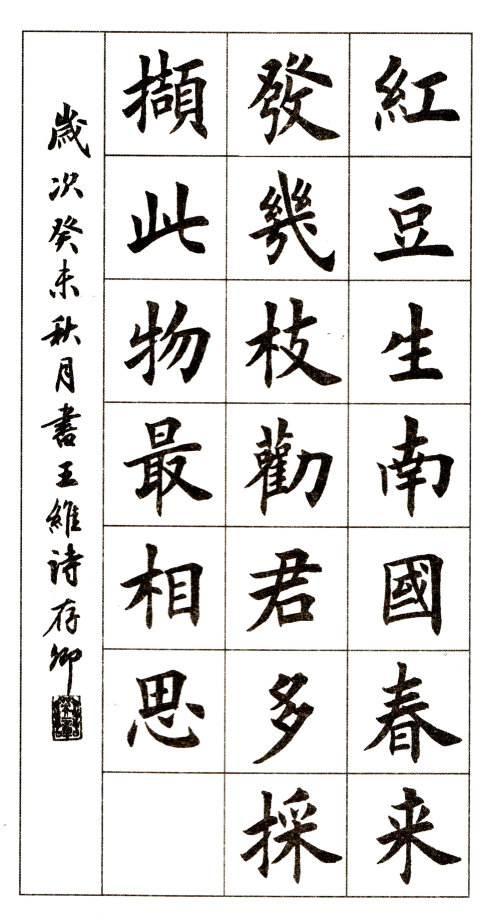 紅豆生南國春来
發幾枝勸君多採
擷此物最相思
歲次癸未秋月書王維詩存卿